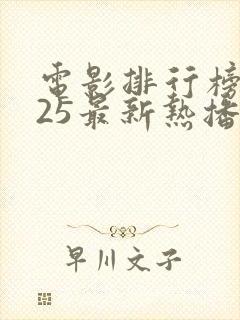 電影排行榜
25最新熱播
早川文子